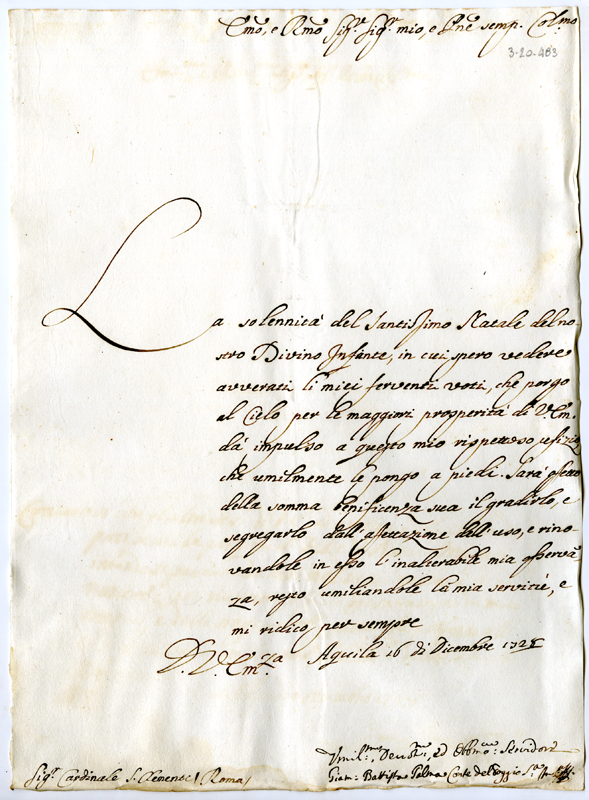 Emo, e Rmo Sigr. Sigr. mio, e Pne semp. Colmo
3-20-483
La solennità del Santissimo Natale del no-
stro Divino Infante, in cui spero vedere
avverati li miei ferventi voti, che porgo
al Cielo per le maggiori prosperità di V. Em.
dà impulso a questo mio rispettoso ufizio
che umilmente le pongo a piedi. Sarà effetto
della somma benificenza sua il gradirlo, e
segregarlo dall'affettazione dell'uso, e rino-
vandole in esso l'inalterabile mia osservā-
za, resto umiliandole la mia servitù, e
mi ridico per sempre
D. V. Emza Aquila 16 di Dicembre
Umilmo, Devotmo, ed Obbmo: Servidore
Giam: Battista Palma Conte del Poggio
Sigr. Cardinale S. Clemente / Roma /